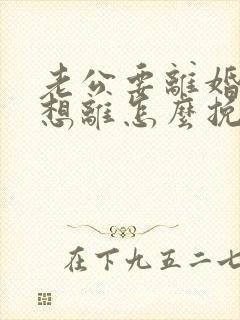 老公要離婚
想離怎麼挽
在下九五二七